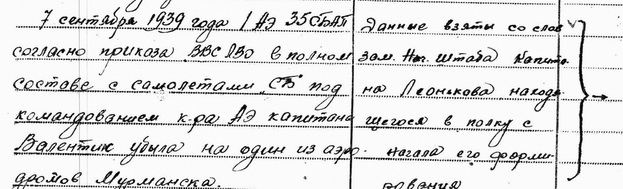 7 сентября 1939 года 1 АЭ 35СБАП
согласно приказа ВВС ЛВО в полном
составе с самолетами СБ под
командованием к-ра АЭ капитана
Валентик убыла на один из аэро-
дромов Мурманска.
Данные взяты со слов
зам. Нач. штаба Капита
на Леонькова находя
щегося в полку с
начала его форми
рования